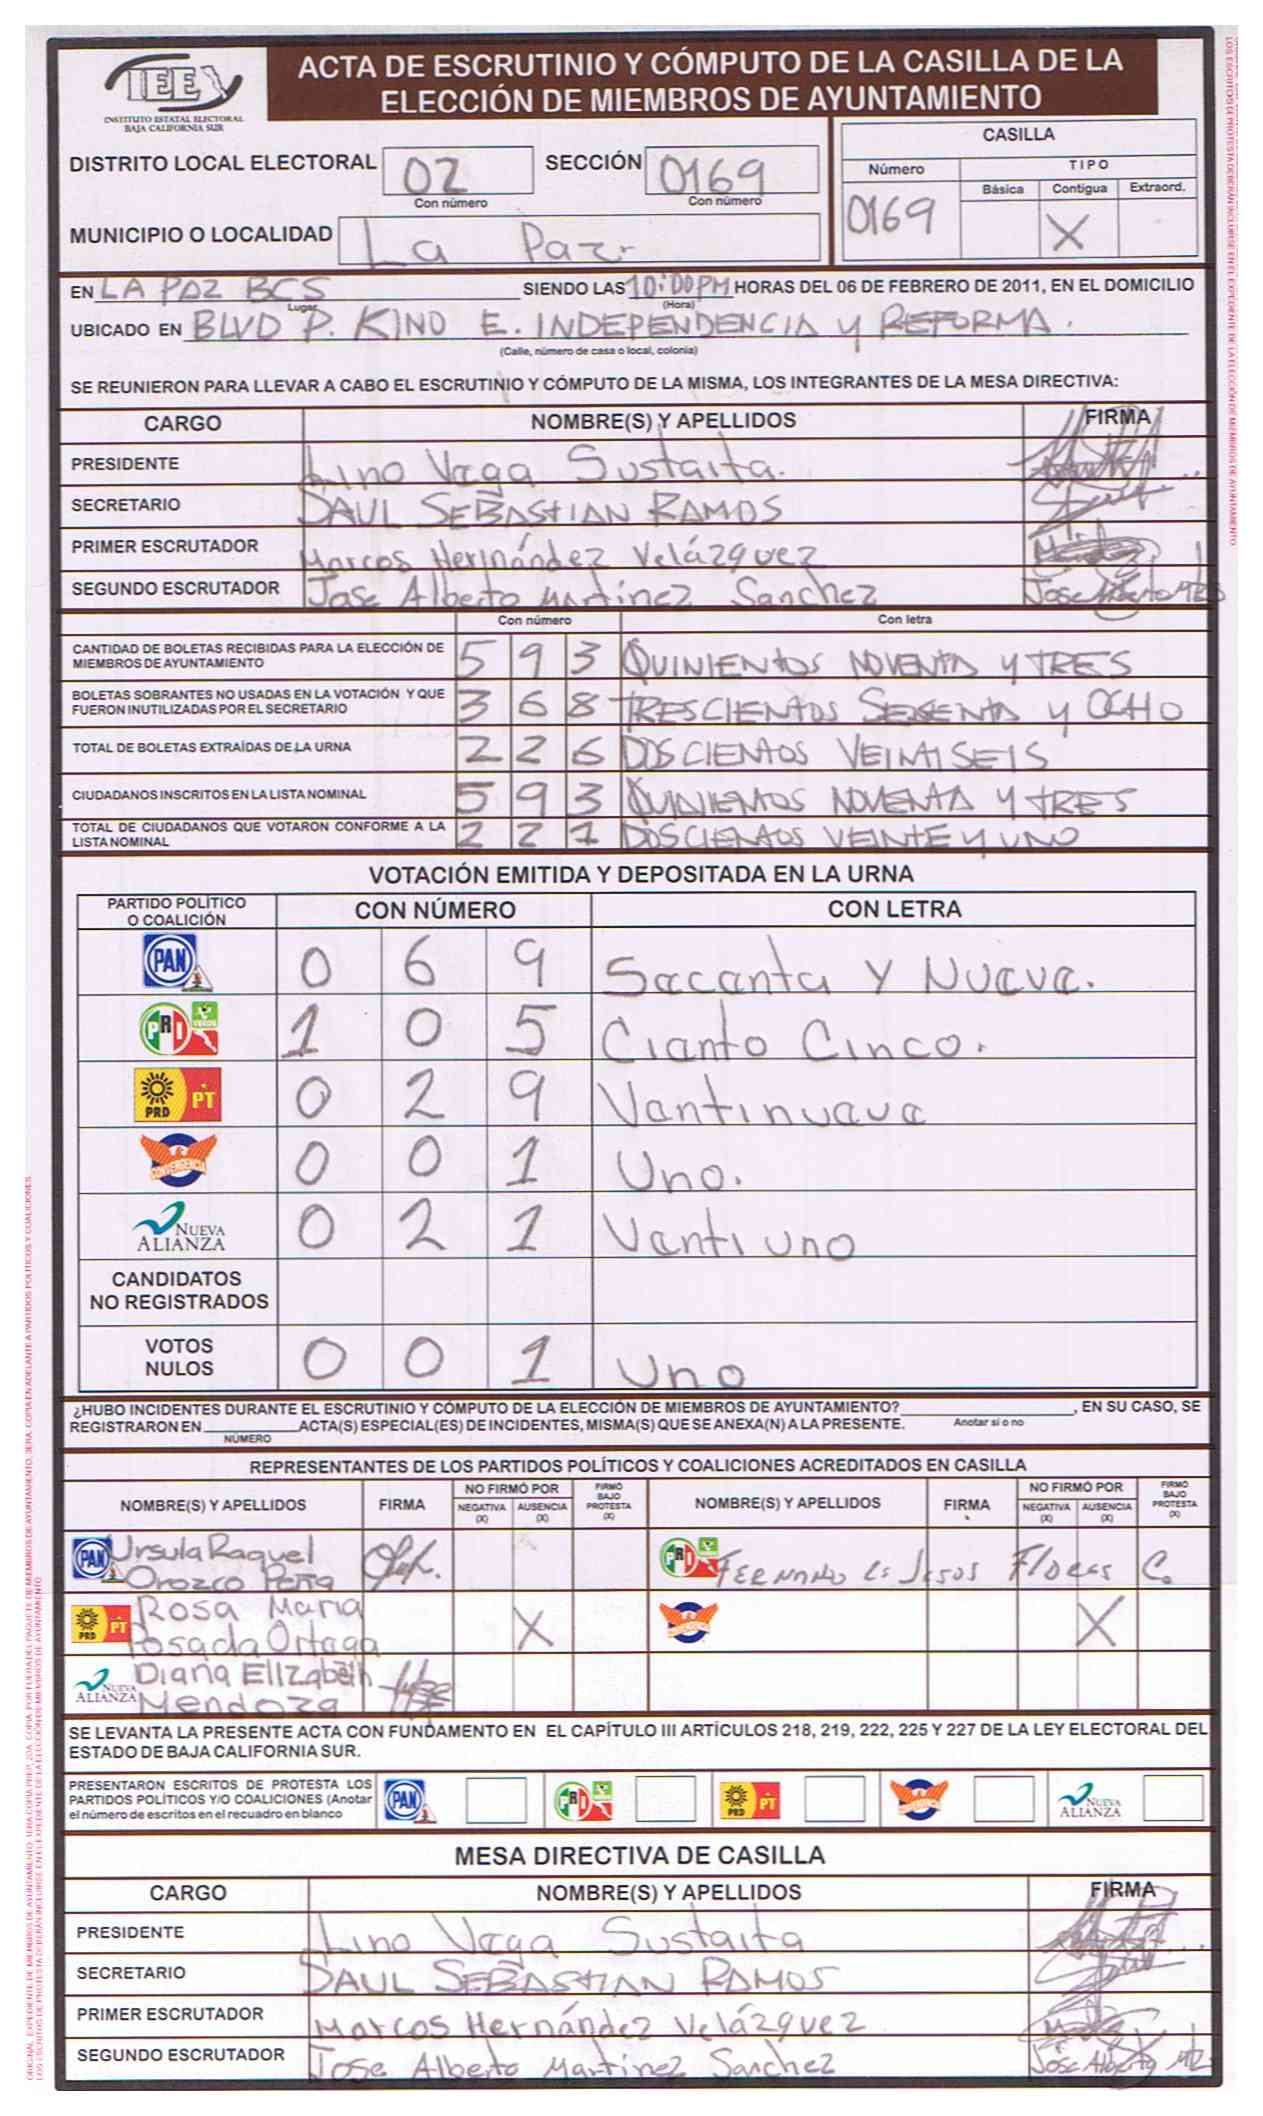 IEE
INSTITUTO ESTATAL ELECTORAL
BAJA CALIFORNIA SUR
ACTA DE ESCRUTINIO Y CÓMPUTO DE LA CASILLA DE LA
ELECCIÓN DE MIEMBROS DE AYUNTAMIENTO
DISTRITO LOCAL ELECTORAL 02 SECCIÓN 0169
Con número Con número
MUNICIPIO O LOCALIDAD La Paz
CASILLA
Número TIPO
Básica Contigua Extraord.
0169 X
EN LA PAZ BCS SIENDO LAS 10:00PM HORAS DEL 06 DE FEBRERO DE 2011, EN EL DOMICILIO
Lugar (Hora)
UBICADO EN BLVD P. KINO E. INDEPENDENCIA y REFORMA.
(Calle, número de casa o local, colonia)
SE REUNIERON PARA LLEVAR A CABO EL ESCRUTINIO Y CÓMPUTO DE LA MISMA, LOS INTEGRANTES DE LA MESA DIRECTIVA:
CARGO NOMBRE(S) Y APELLIDOS FIRMA
PRESIDENTE Lino Vega Sustaita.
SECRETARIO SAUL SEBASTIAN RAMOS
PRIMER ESCRUTADOR Marcos Hernández Velázquez
SEGUNDO ESCRUTADOR Jose Alberto Martinez Sanchez Jose Alberto Mtz
Con número Con letra
CANTIDAD DE BOLETAS RECIBIDAS PARA LA ELECCIÓN DE
MIEMBROS DE AYUNTAMIENTO 5 9 3 QUINIENTOS NOVENTA Y TRES
BOLETAS SOBRANTES NO USADAS EN LA VOTACIÓN Y QUE
FUERON INUTILIZADAS POR EL SECRETARIO 3 6 8 TRESCIENTOS SESENTA y OCHO
TOTAL DE BOLETAS EXTRAÍDAS DE LA URNA 2 2 6 DOSCIENTOS VEINTISEIS
CIUDADANOS INSCRITOS EN LA LISTA NOMINAL 5 9 3 QUINIENTOS NOVENTA Y TRES
TOTAL DE CIUDADANOS QUE VOTARON CONFORME A LA
LISTA NOMINAL 2 2 1 DOSCIENTOS VEINTE Y UNO
VOTACIÓN EMITIDA Y DEPOSITADA EN LA URNA
PARTIDO POLÍTICO
O COALICIÓN CON NÚMERO CON LETRA
PAN 0 6 9 Secenta Y Nueve.
PRI VERDE 1 0 5 Ciento Cinco.
PRD PT 0 2 9 Ventinueve
CONVERGENCIA 0 0 1 Uno.
NUEVA ALIANZA 0 2 1 Venti uno
CANDIDATOS
NO REGISTRADOS
VOTOS
NULOS 0 0 1 Uno
¿HUBO INCIDENTES DURANTE EL ESCRUTINIO Y CÓMPUTO DE LA ELECCIÓN DE MIEMBROS DE AYUNTAMIENTO? , EN SU CASO, SE
REGISTRARON EN ACTA(S) ESPECIAL(ES) DE INCIDENTES, MISMA(S) QUE SE ANEXA(N) A LA PRESENTE. Anotar sí o no
NÚMERO
REPRESENTANTES DE LOS PARTIDOS POLÍTICOS Y COALICIONES ACREDITADOS EN CASILLA
NOMBRE(S) Y APELLIDOS FIRMA NO FIRMÓ POR NEGATIVA (X) AUSENCIA (X) FIRMÓ BAJO PROTESTA (X) NOMBRE(S) Y APELLIDOS FIRMA NO FIRMÓ POR NEGATIVA (X) AUSENCIA (X) FIRMÓ BAJO PROTESTA (X)
PAN Ursula Raquel
Orozco Peña
PRI FERNANDO de JESUS FLORES C.
PRD PT Rosa Maria
Posada Ortega X
CONVERGENCIA X
NUEVA ALIANZA Diana Elizabeth
Mendoza
SE LEVANTA LA PRESENTE ACTA CON FUNDAMENTO EN EL CAPÍTULO III ARTÍCULOS 218, 219, 222, 225 Y 227 DE LA LEY ELECTORAL DEL
ESTADO DE BAJA CALIFORNIA SUR.
PRESENTARON ESCRITOS DE PROTESTA LOS
PARTIDOS POLÍTICOS Y/O COALICIONES (Anotar
el número de escritos en el recuadro en blanco
PAN PRI PRD PT NUEVA ALIANZA
MESA DIRECTIVA DE CASILLA
CARGO NOMBRE(S) Y APELLIDOS FIRMA
PRESIDENTE Lino Vega Sustaita
SECRETARIO SAUL SEBASTIAN RAMOS
PRIMER ESCRUTADOR Marcos Hernández Velázquez
SEGUNDO ESCRUTADOR Jose Alberto Martinez Sanchez Jose Alberto Mtz
LOS ESCRITOS DE PROTESTA DEBERÁN INCLUIRSE EN EL EXPEDIENTE DE LA ELECCIÓN DE MIEMBROS DE AYUNTAMIENTO